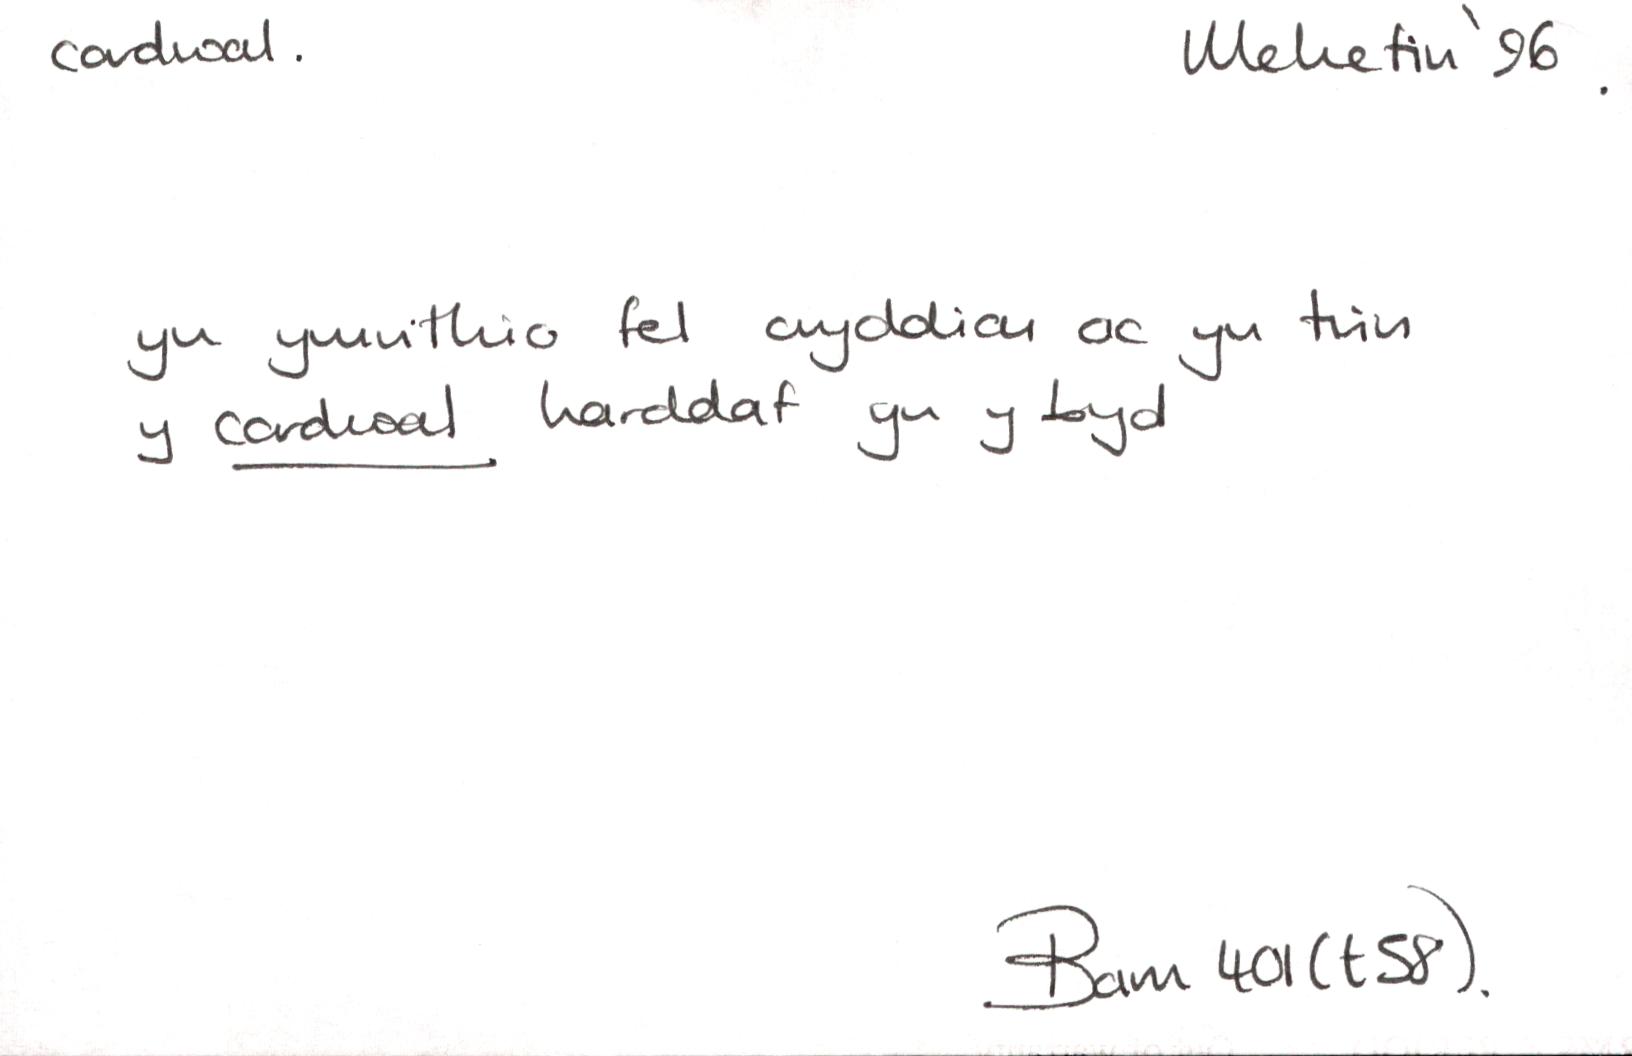 cordwal. Mehefin '96.
yn ymrithio fel cryddion ac yn trin
y cordwal harddaf yn y byd
Barn 401 (t58).